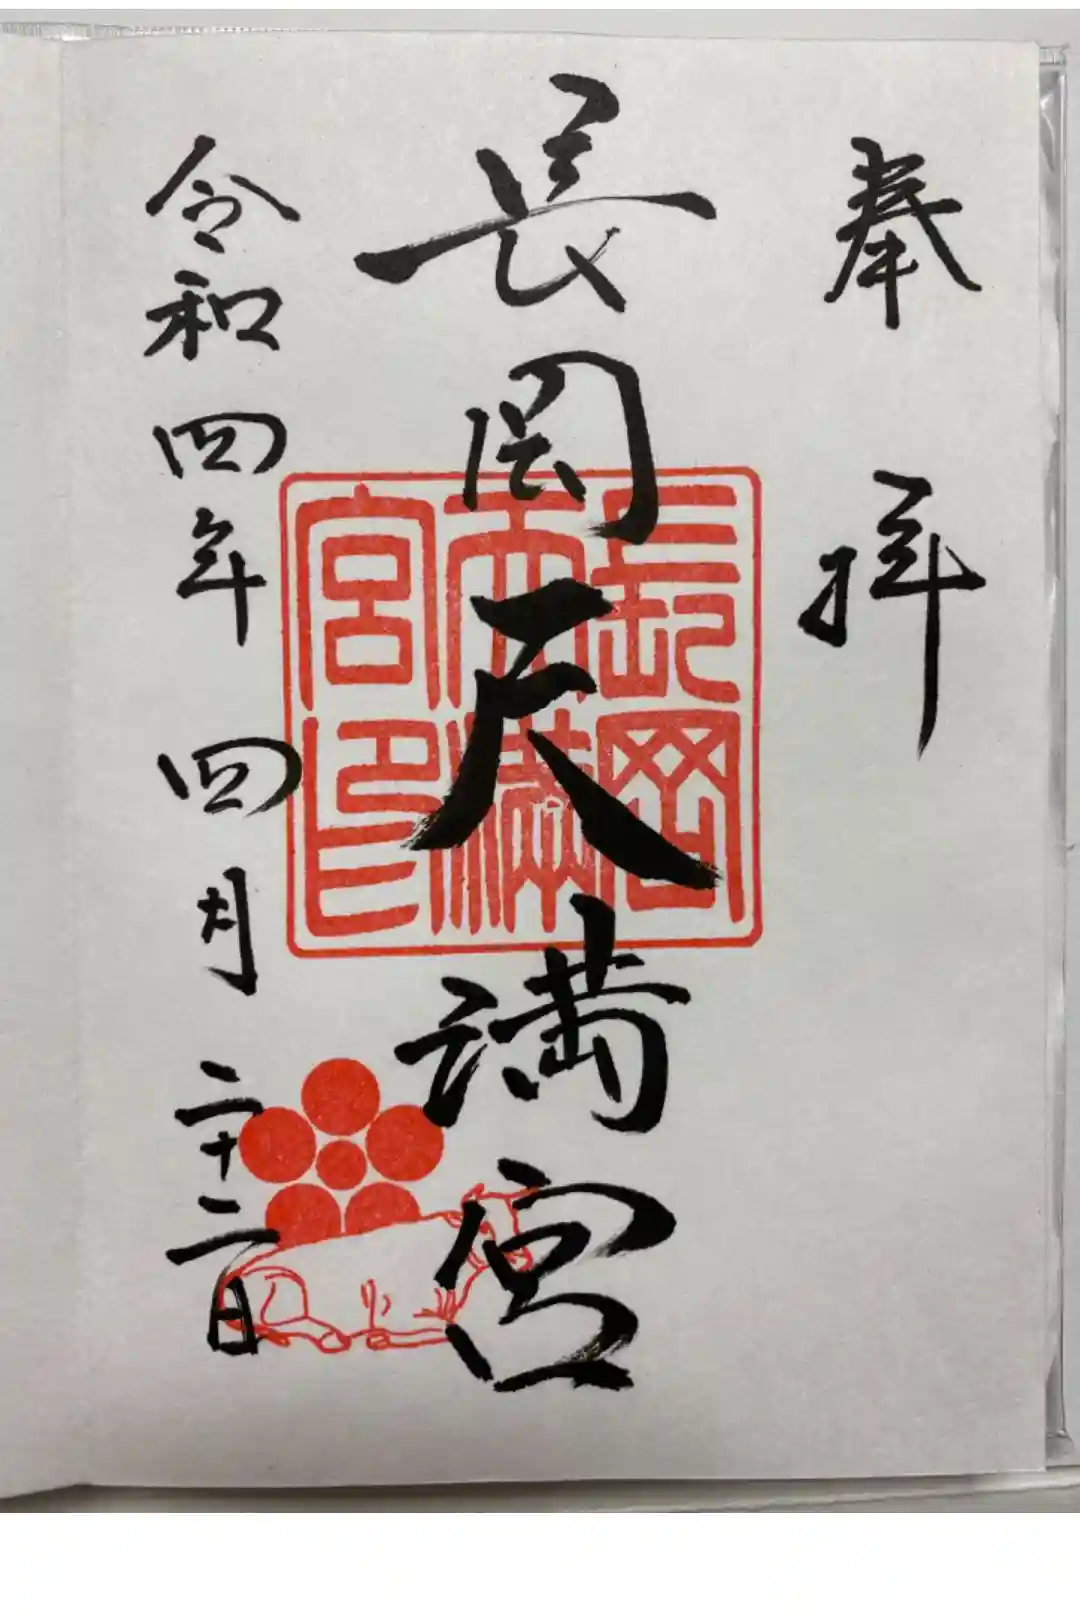 奉拝
長岡天満宮
長岡
天満
宮印
令和四年四月二十二日